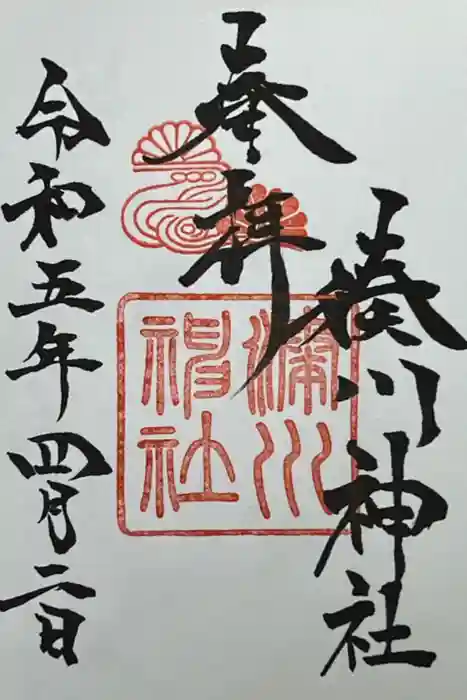 奉拝
湊川神社
湊川神社
令和五年四月二日